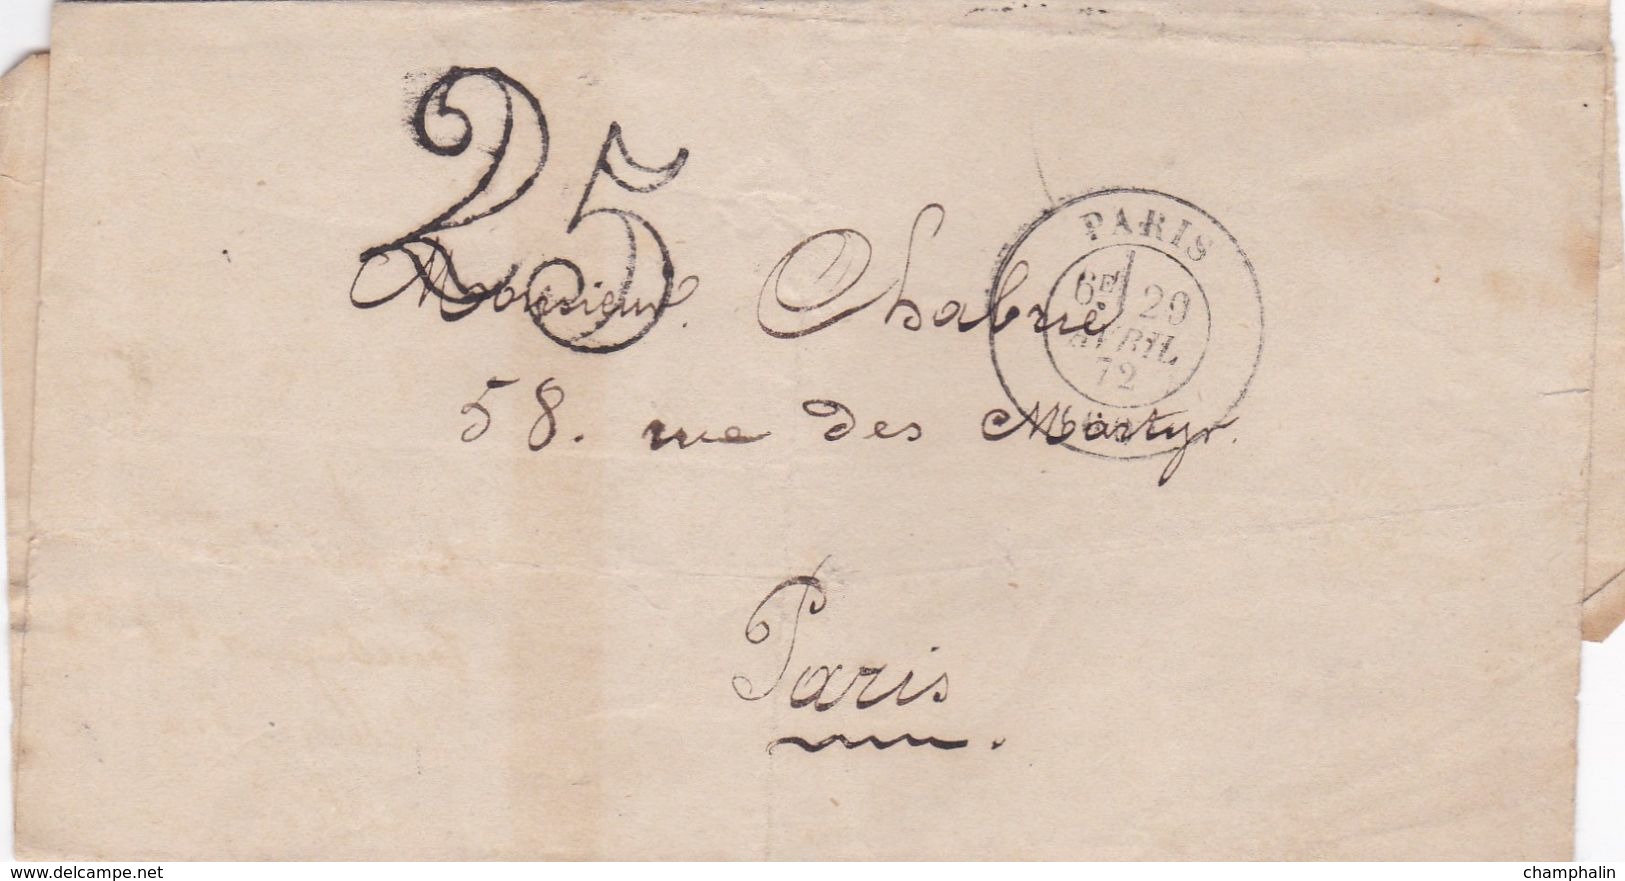 25
PARIS
6E 29
AVRIL
72
Monsieur Chabrié
58. rue des Martyr.
Paris
delcampe.net
champhalin